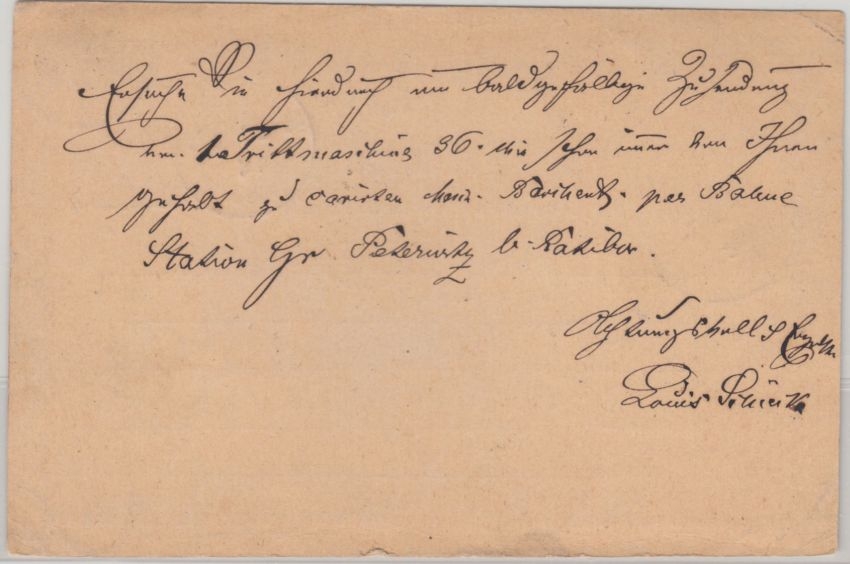 Ersuche Sie hierdurch um baldgefällige Zusendung
von 1 Trittmaschine 36. wie schon immer von Ihnen
gehabt zu per Bahne
Station Gr Peterwitz b. Ratibor.
Achtungsvoll
Louis